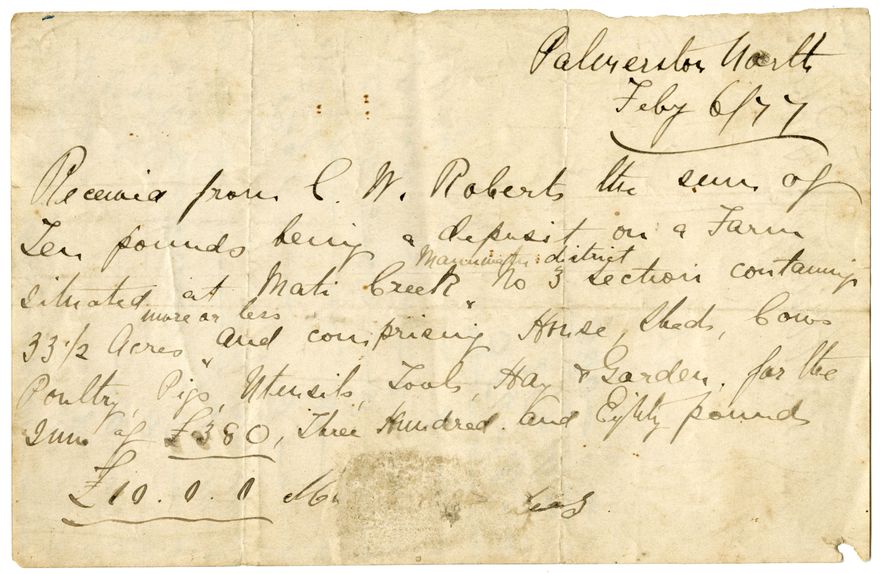 Palmerston North
Feby 6/77
Received from C. W. Roberts the sum of
Ten pounds being a deposit on a Farm
situated at Mati Creek district No 3 section containing
more or less
33 1/2 Acres and comprising House, Sheds, Cows
Poultry, Pigs, Utensils, Tools, Hay & Garden. for the
Sum of £380, Three Hundred and Eighty pounds
£10.0.0